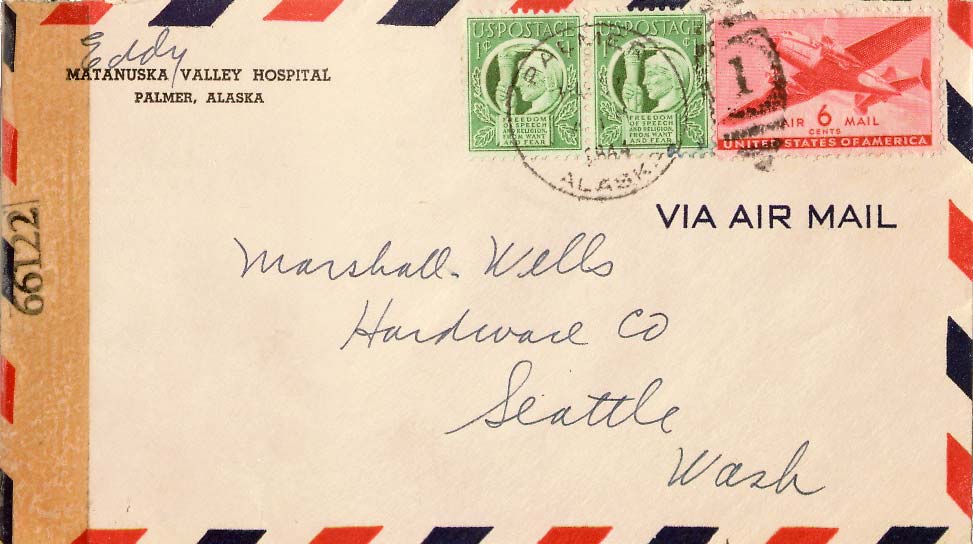 Eddy
MATANUSKA VALLEY HOSPITAL
PALMER, ALASKA
U.S. POSTAGE
1¢
FREEDOM
OF SPEECH
AND RELIGION,
FROM WANT
AND FEAR
U.S. POSTAGE
1¢
FREEDOM
OF SPEECH
AND RELIGION,
FROM WANT
AND FEAR
PALMER
ALASKA
1
AIR 6 MAIL
CENTS
UNITED STATES OF AMERICA
VIA AIR MAIL
66122
Marshall-Wells
Hardware Co
Seattle
Wash